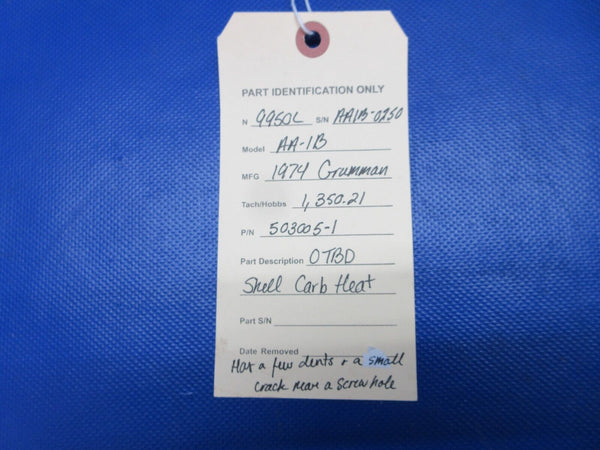 PART IDENTIFICATION ONLY
N 9950L S/N AA1B-0250
Model AA-1B
MFG 1974 Grumman
Tach/Hobbs 1,350.21
P/N 503005-1
Part Description OTBD
Shell Carb Heat
Part S/N
Date Removed
Has a few dents + a small
crack near a screw hole